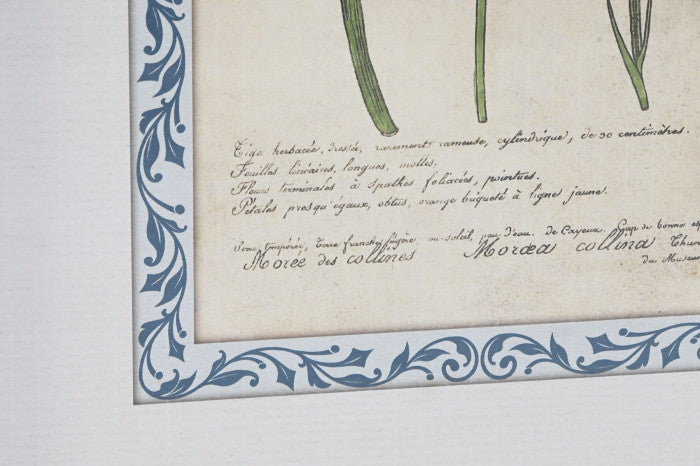 Tige herbacée, dressée, rarement rameuse, cylindrique, de 30 centimètres.
Feuilles linéaires, longues, molles.
Fleurs terminales, à spathes foliacées, pointues.
Pétales presqu'égaux, obtus, orange buqueté à ligne jaune.
Serre tempérée, Terre franche légère, mi-soleil, peu d'eau. de Cayeux. Cap de bonne esp
Morée des collines Moræa collina Thun
du Museum